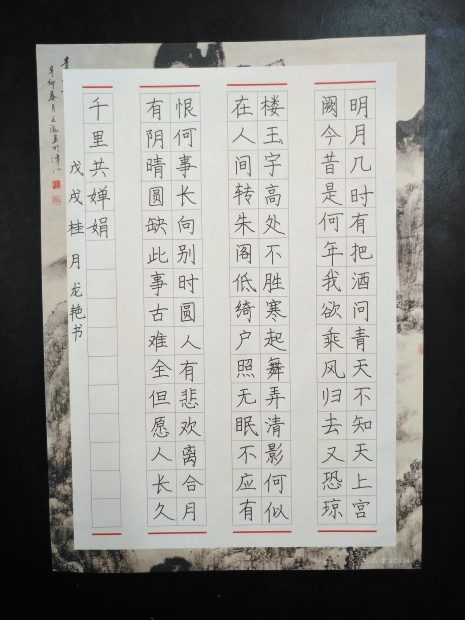 明月几时有把酒问青天不知天上宫
阙今昔是何年我欲乘风归去又恐琼
楼玉宇高处不胜寒起舞弄清影何似
在人间转朱阁低绮户照无眠不应有
恨何事长向别时圆人有悲欢离合月
有阴晴圆缺此事古难全但愿人长久
千里共婵娟
戊戌桂月龙艳书
辛卯春月